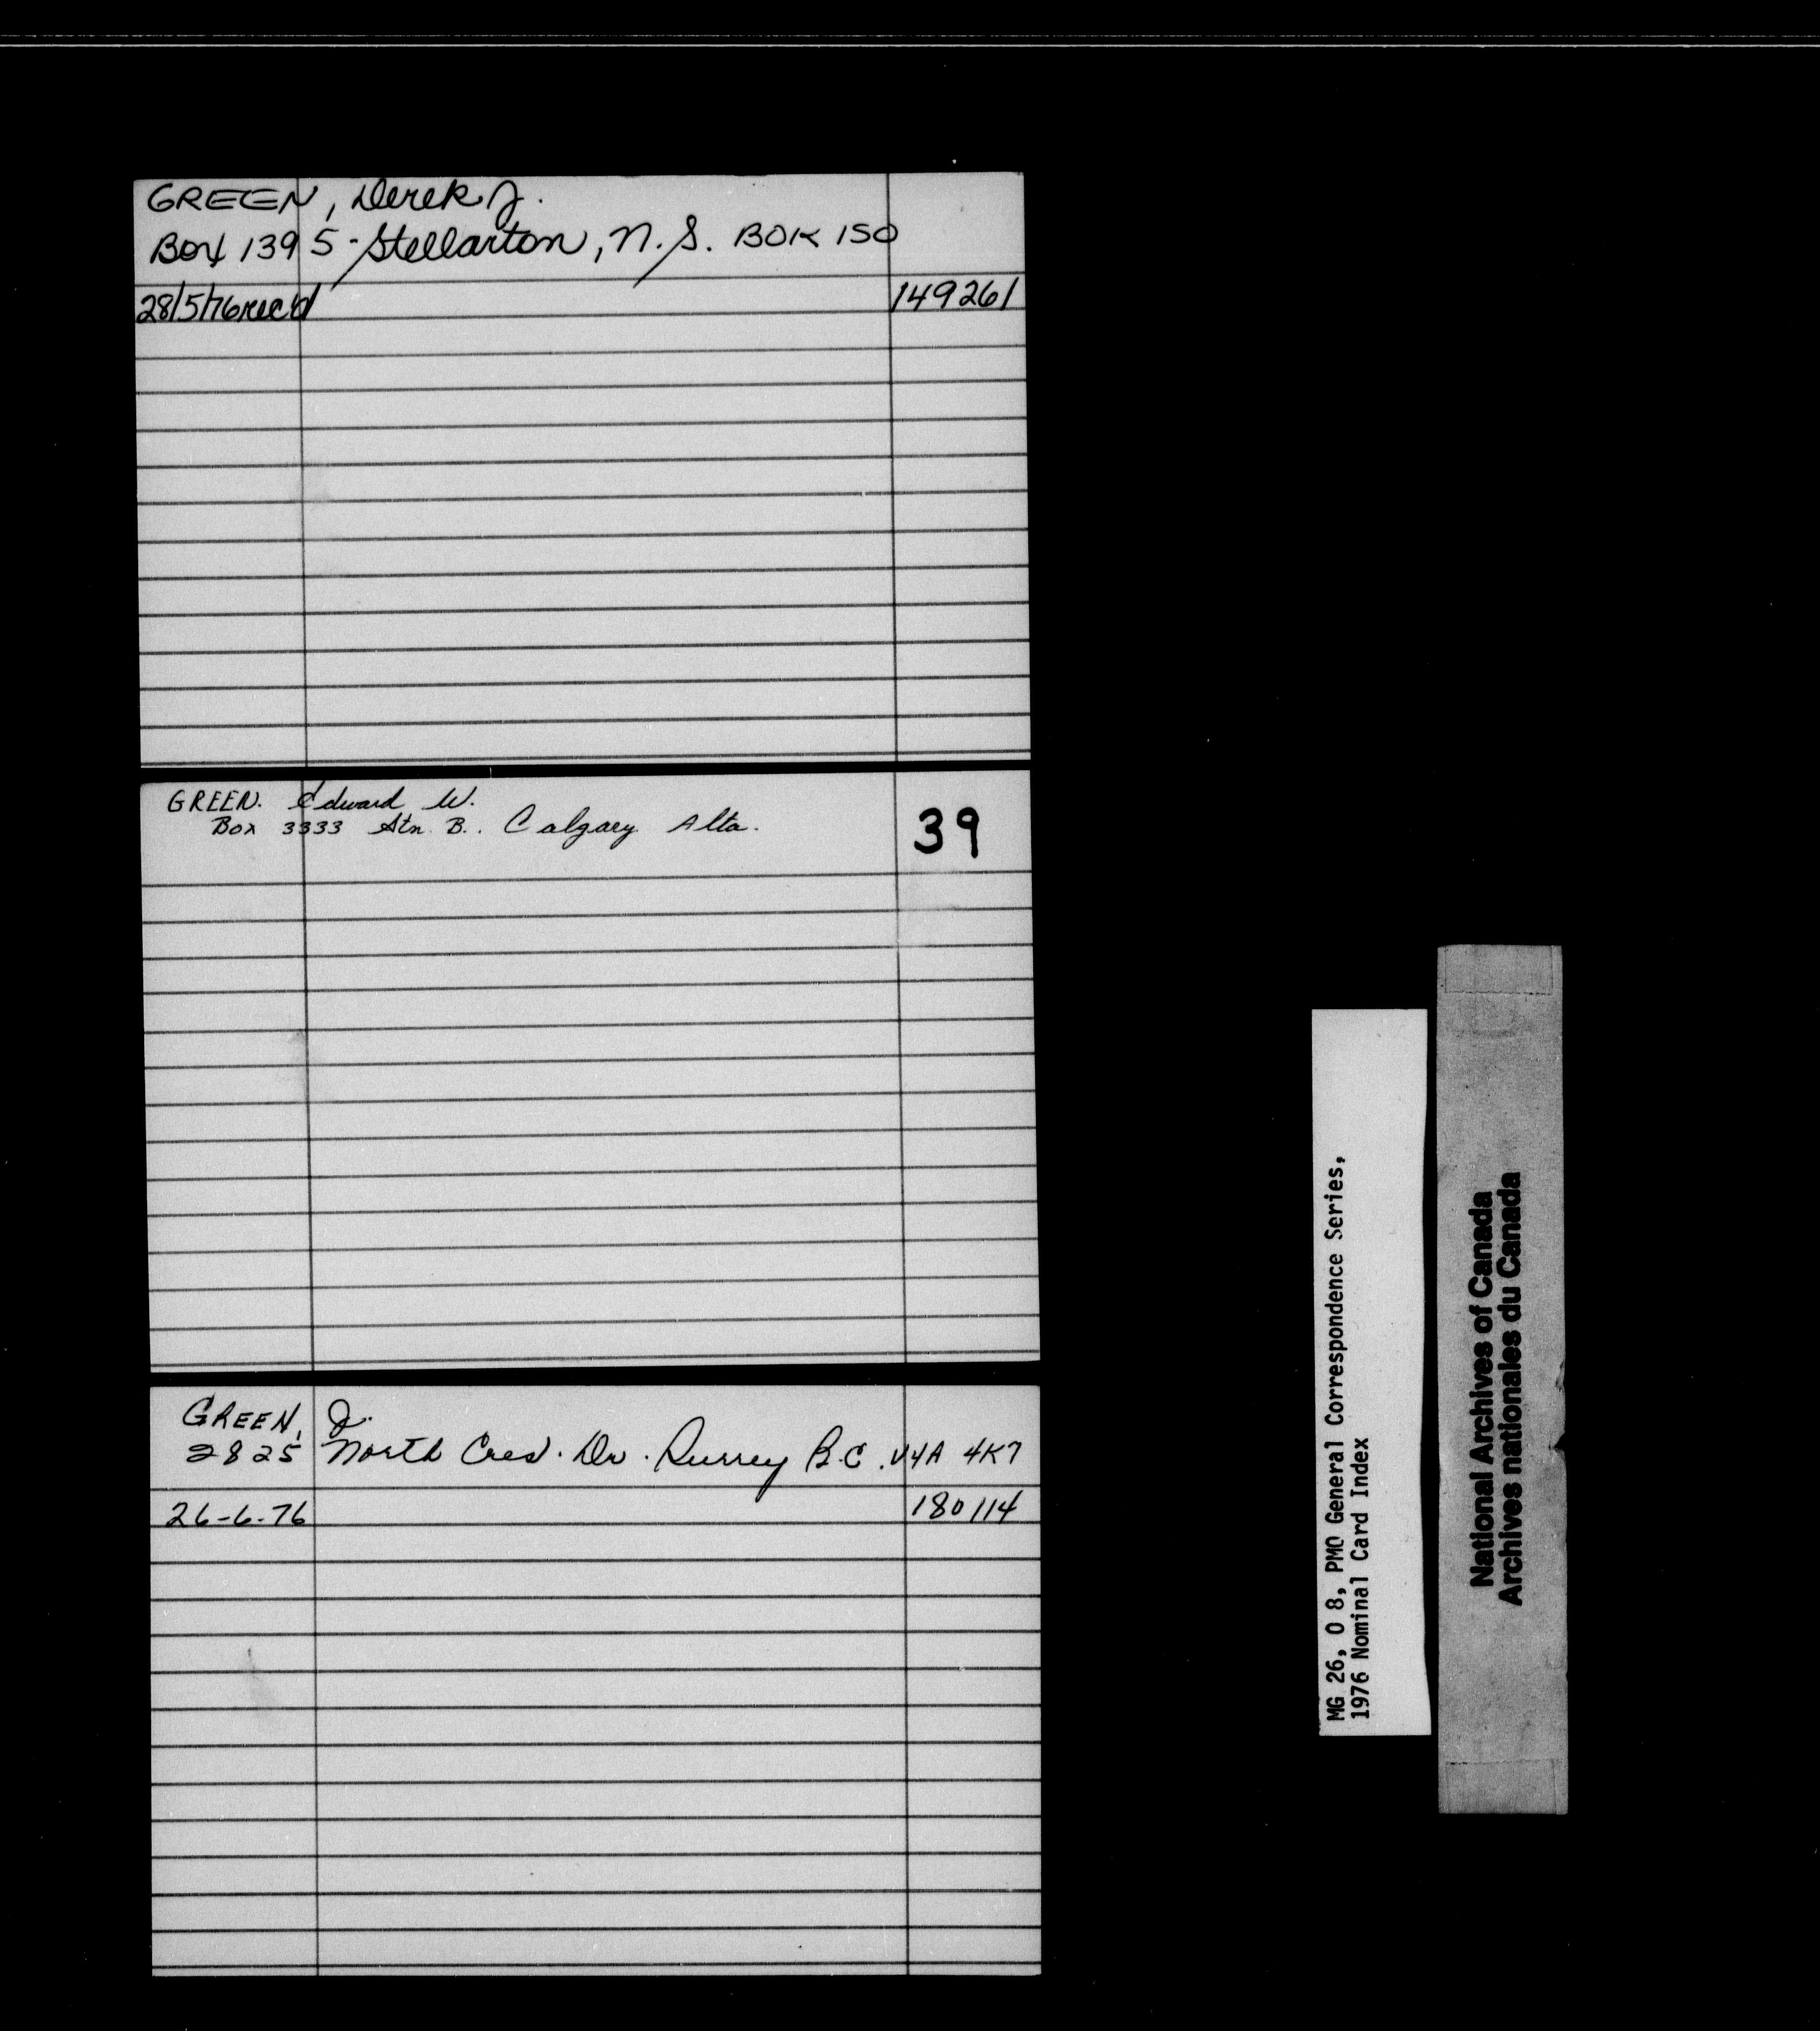 GREEN, Derek J.
Box 1395 - Stellarton, N.S. BOK 1SO
28/5/76 rec'd 149261
GREEN. Edward W.
Box 3333 Stn. B.. Calgary Alta.
39
GREEN, J.
2825 North Cres. Dr. Surrey B.C. V4A 4K7
26-6-76 180114
MG 26, O 8, PMO General Correspondence Series,
1976 Nominal Card Index
National Archives of Canada
Archives nationales du Canada